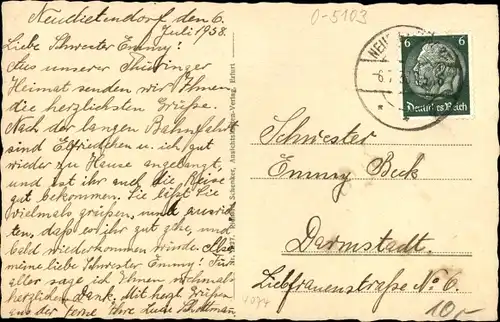 Neudietendorf den 6.
Juli 1938.
Liebe Schwester Emmy!
Aus unserer Thüringer
Heimat senden wir Ihnen
die herzlichsten Grüße.
Nach der langen Bahnfahrt
sind u. ich gut
wieder zu Hause angelangt,
und ist ihr auch die Reise
gut bekommen. Sie läßt Sie
vielmals grüßen, und ausrich-
ten, daß es ihr gut gehe, und
bald wiederkommen würde. Also
meine liebe Schwester Emmy! Für
alles sage ich Ihnen nochmals
herzlichen Dank. Mit herzl. Grüßen
aus der Ferne Ihre
Schenker, Ansichtskarten-Verlag, Erfurt
0-5103
6 6
Deutsches Reich
Schwester
Emmy Beck
Darmstadt.
Liebfrauenstraße No 6.
10,-